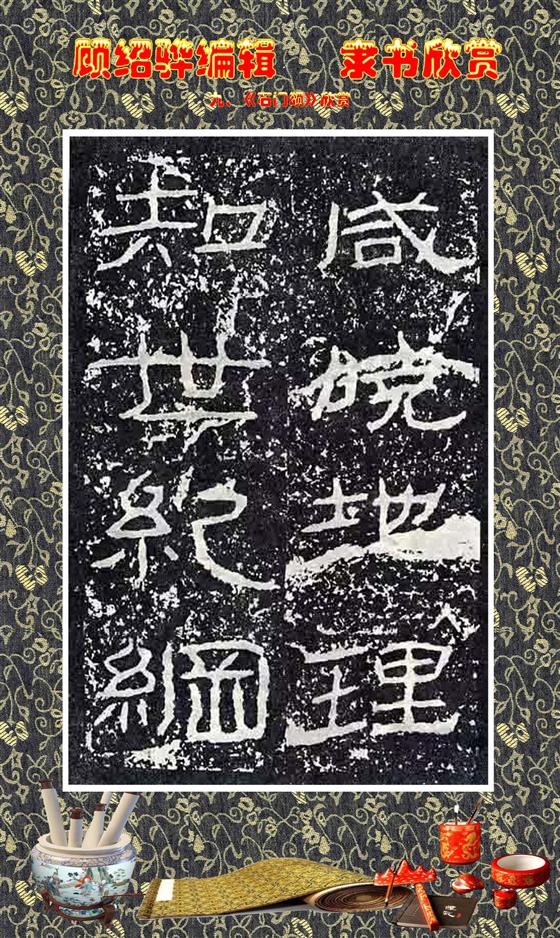 顾绍骅编辑 隶书欣赏
九、《石门颂》欣赏
咸曉地理
知世紀綱